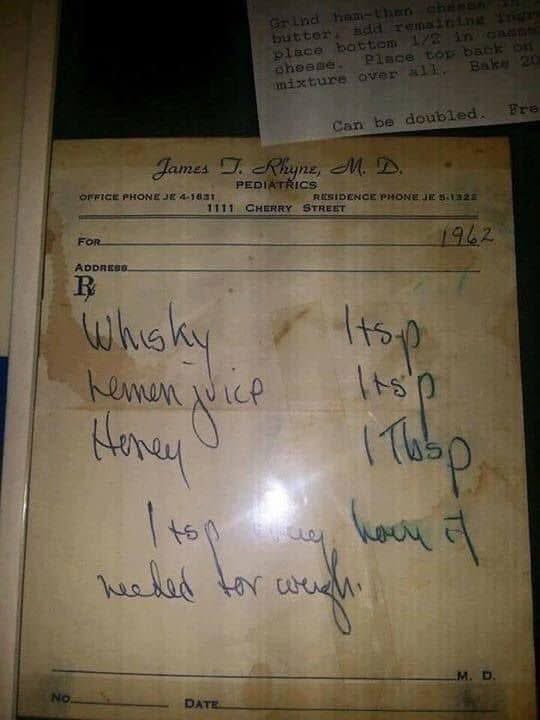 Grind ham-then cheese
butter, add remaining
place bottom 1/2 in
cheese. Place top back on
mixture over all. Bake 20
Can be doubled. Fre
James T. Rhyne, M. D.
PEDIATRICS
OFFICE PHONE JE 4-1631 RESIDENCE PHONE JE 5-1322
1111 CHERRY STREET
FOR 1962
ADDRESS
Rx
Whisky 1 tsp
Lemon juice 1 tsp
Honey 1 Tbsp
1 tsp hour if
needed for cough.
M. D.
NO. DATE